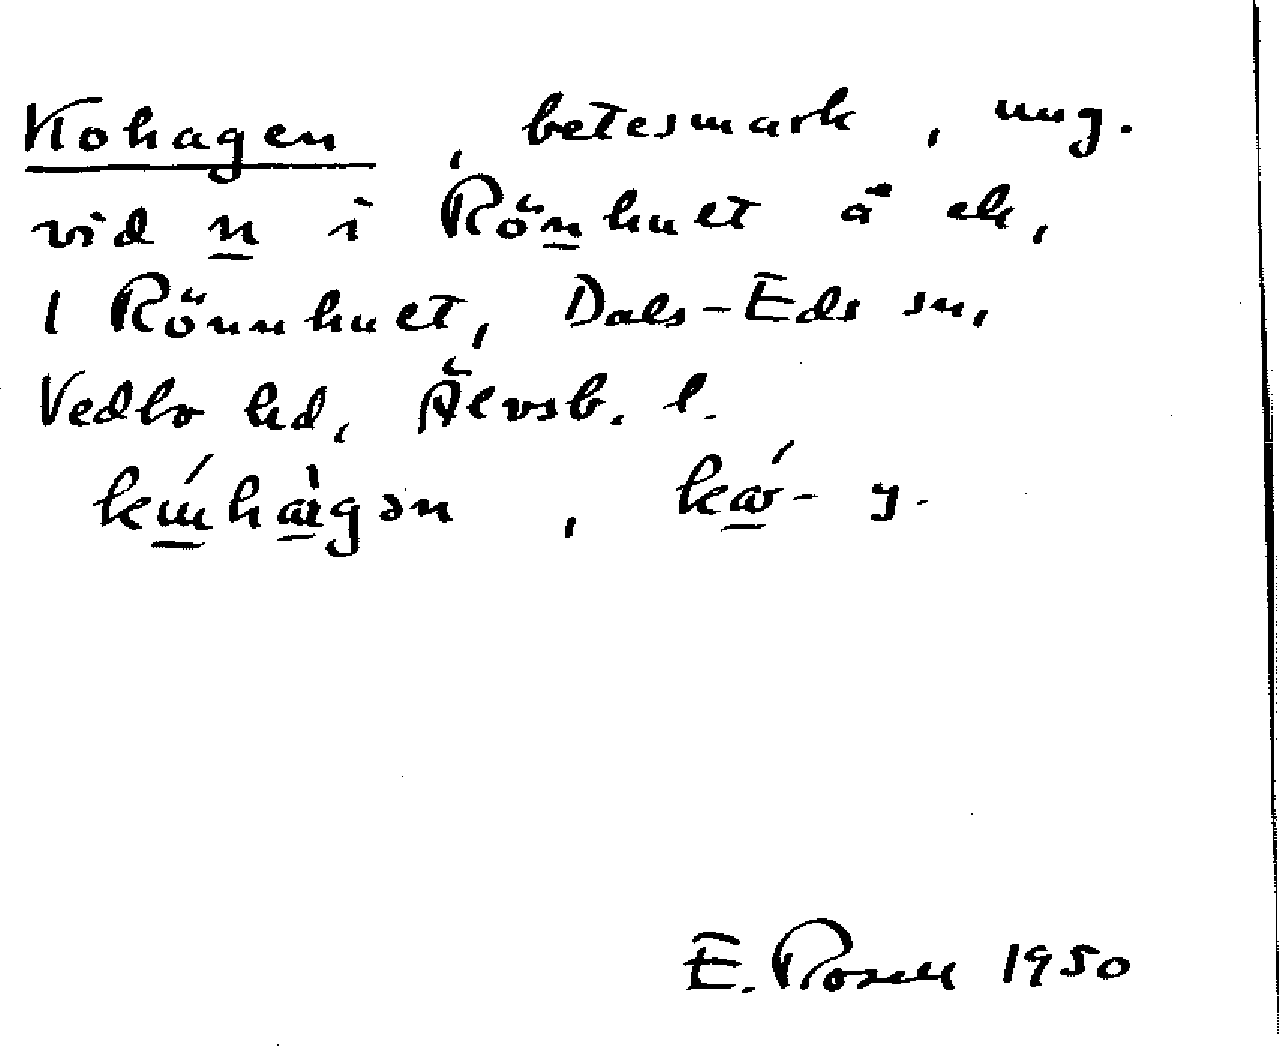 Kohagen, betesmark, ung.
vid n i Rönhult å ek,
1 Rönnhult, Dals-Eds sn,
Vedbo hd, Älvsb. l.
E. Rosell 1950